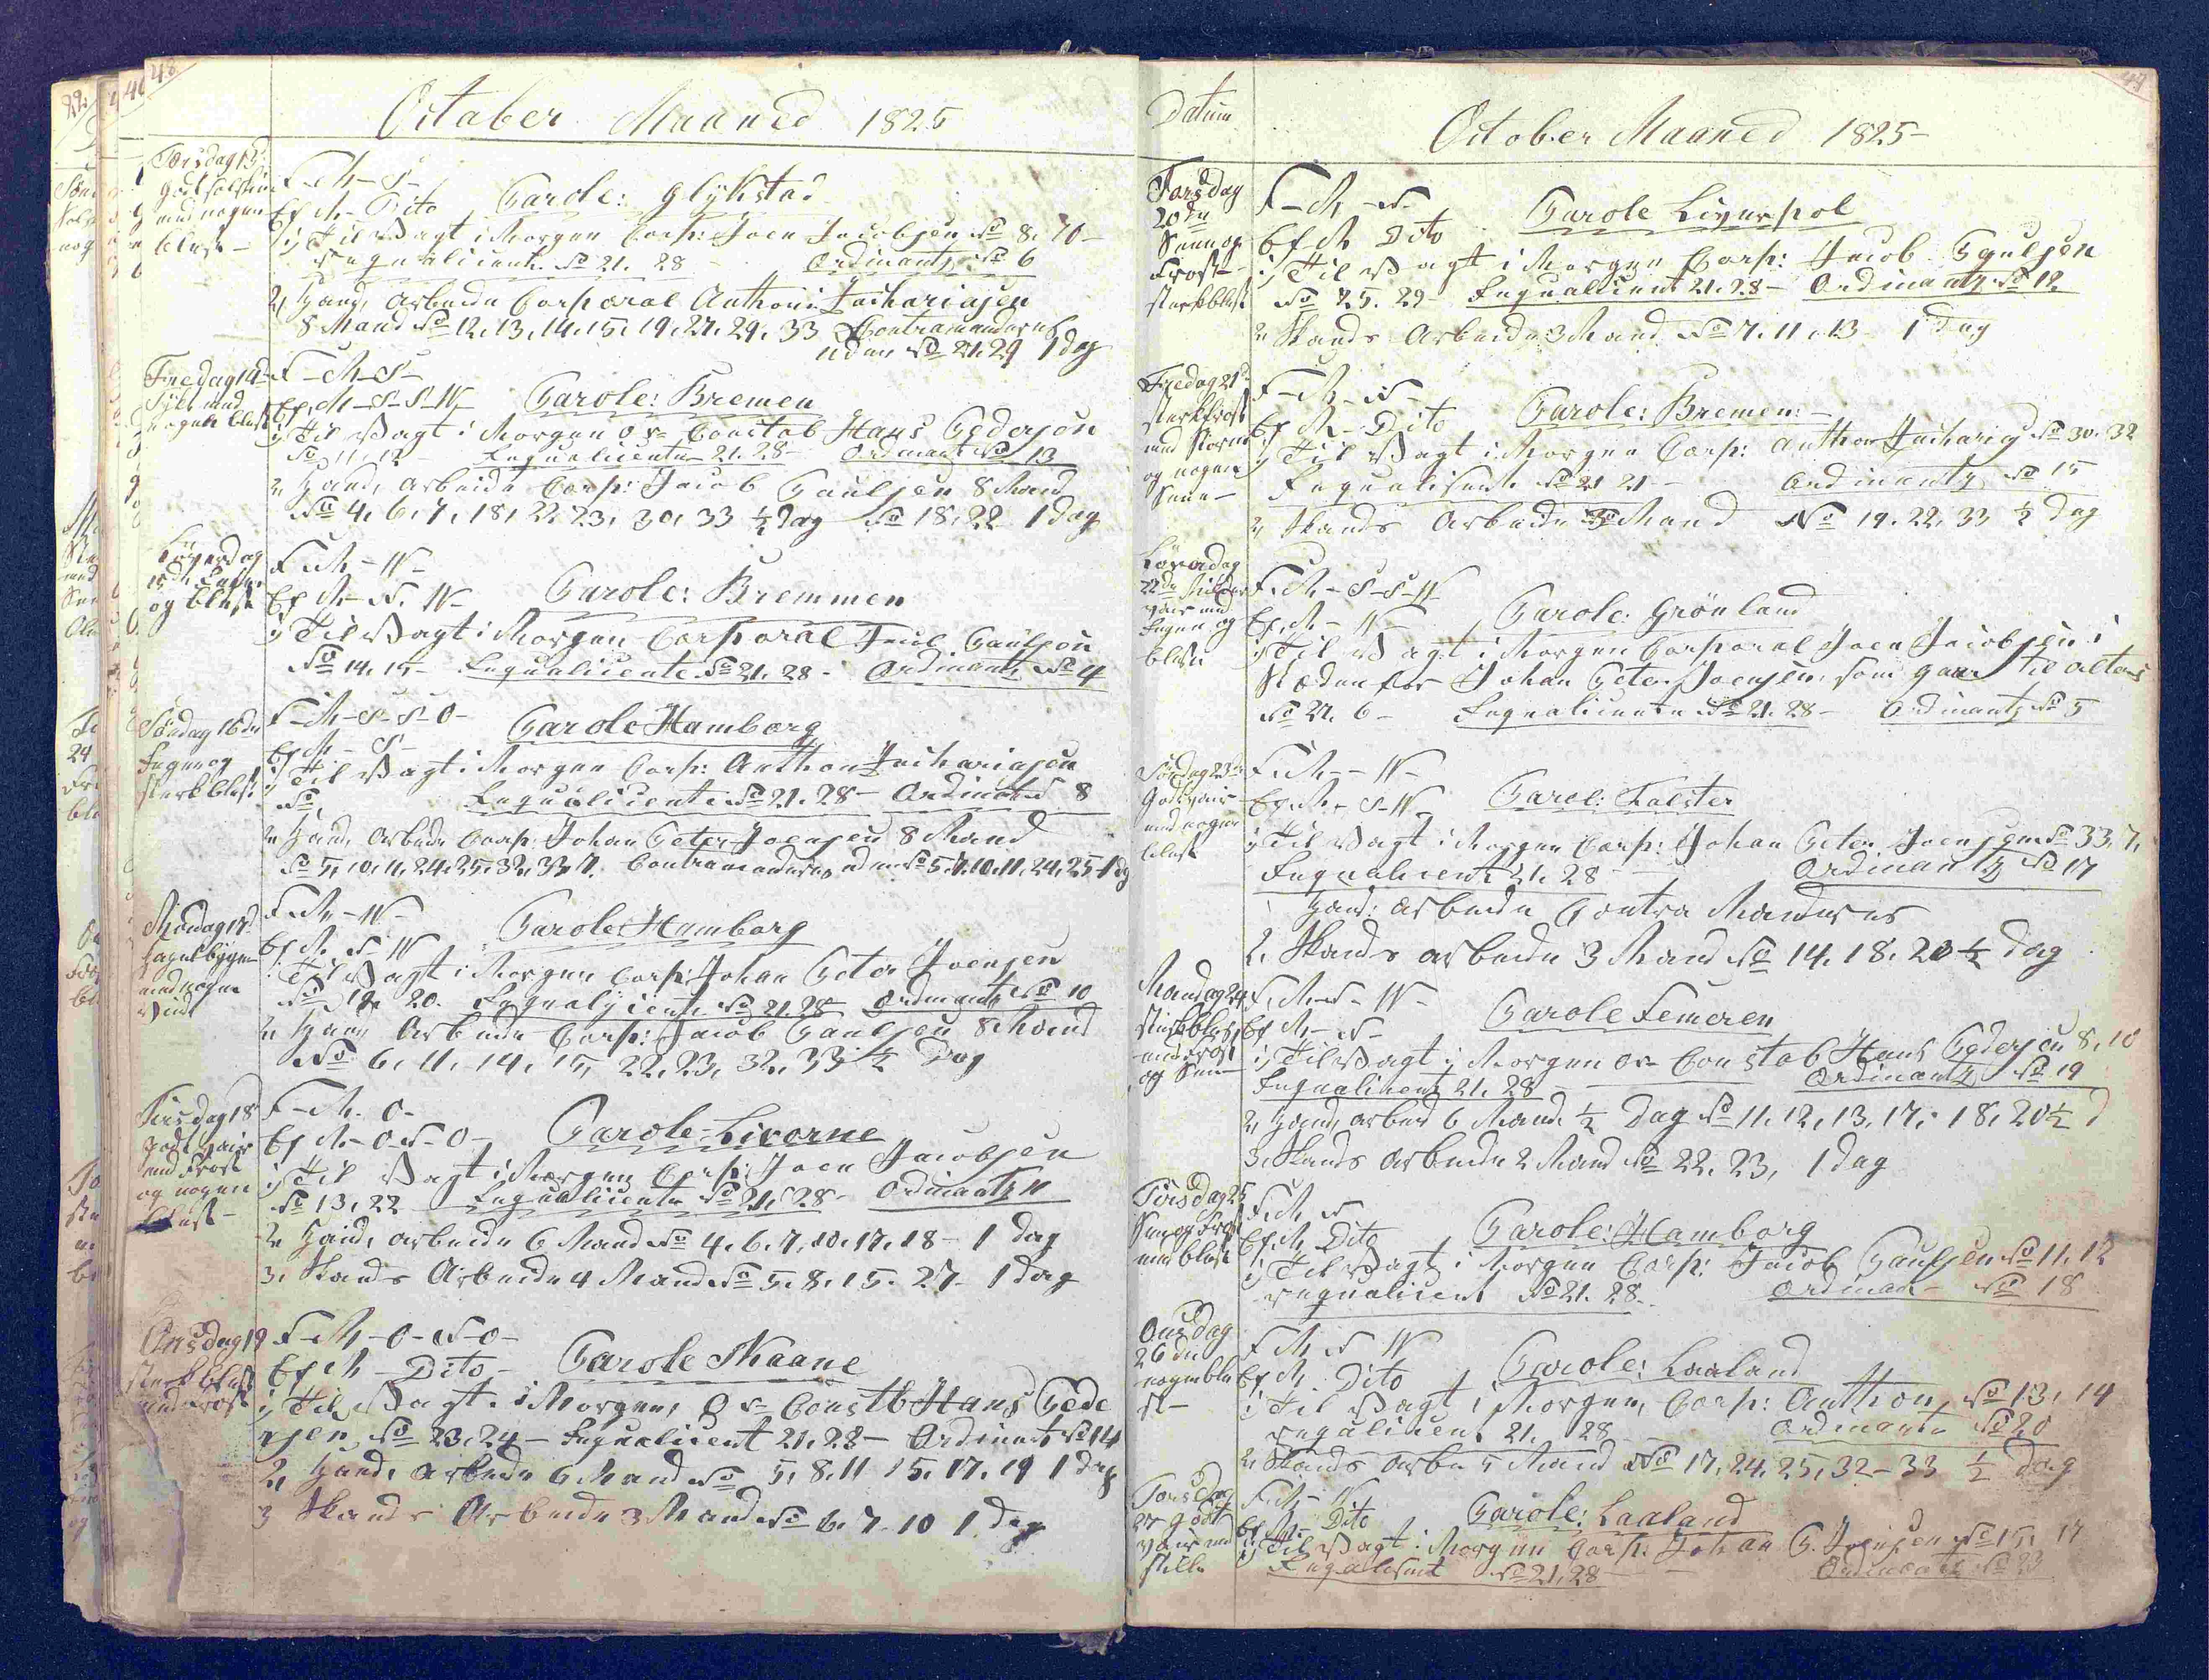 48
October Maaned 1825
Torsdag 13de
F-M-S-
godt solskin
med nogen
Ef M- Dito Parole: Glykstad
blæst-
1, Til Vagt i Morgen Corp: Joen Jacobsen No 8. 10-
Requalicente No 21. 28 Ordinantz No 6
2, Haand, Arbeide Corporal Anthoni Zachariasen
8 Mand No 12. 13. 14. 15. 19. 27. 29. 33 Contramanderes
uden No 21. 29 1 dag
Fredag 14de F-M-S-
Tykt med
nogen blæst
Ef, M-S-S-W- Parole: Bremen
1, Til Vagt i Morgen ov- Constab Hans Pedersen
No 11. 12 Requalicente 21. 28- Ordinant No 13
2 Haand, Arbeide Corp: Jacob Paulsen 8 Mand
No 4. 6. 7. 18. 22. 23. 30. 33 ½ dag No 18. 22 1 dag
Løverdag
15de Regn
og blæst
F. M-W-
Ef M- N. W- Parole: Bremmen
1, Til Vagt i Morgen Corporal Juul Paulsen
No 14. 15- Requalicente No 21. 28- Ordinantz No 4
Søndag 16de
Regn og
sterk blæst
F-M-S-S-O-
Ef M- S- Parole Hamborg
1, Til Vagt i Morgen Corp: Anthon Zachariasen
No Requalicente No 21. 28- Ordinantz 8
2 Haand, Arbeide Corp: Johan Peter Joensen 8 Mand
No 5, 10, 11, 24, 25, 32, 33, 7. Contramanderes uden No 5, 7, 10, 11, 24, 25 1 dag
Mondag 17de
hagelbyger
med nogen
Vind
F. M- W-
Ef M. N-W Parole: Hamborg
Til Vagt i Morgen Corp: Johan Peter Joensen
No 19. 20. Requalicente No 21. 28 Ordinantz No 10
2 Haand Arbeide Corp: Jacob Paulsen 8 Mand
No 6, 11, 14, 15, 22, 23, 32, 33 ½ Dag
Tirsdag 18
godt Vair
med Frost
og nogen
blæst-
F-M. O-
Ef M-O-N-O- Parole Livorne
1, Til Vagt i Morgen Corp: Joen Jacobsen
No 13, 22 Requalicente No 21, 28- Ordinantz 11
2 Haand, arbeide 6 Mand No 4. 6. 7. 10. 17. 18- 1 dag
3. Skands Arbeide 4 Mand No 5. 8. 15. 27- 1 dag
Onsdag 19
sterk blæst
med Frost
F-M-O-N-O-
Ef M-Dito- Parole Skaane
1, Til Vagt i Morgen, ov- Constb Hans Pede
rsen No 23. 24- Requalicent 21. 28- Ordinants No 14
2, Haand, arbeide 6 Mand No 5. 8. 11 15. 17. 19 1 dag
3 Skands Arbeide 3 Mand No 6. 7. 10 1 dag
49
Datum
October Maaned 1825-
Torsdag
20de
Snee og
Frost-
sterkblæst
F-M-N-
Ef M Dito Parole Liverpol
1, Til Vagt i Morgen Corp: Jacob Paulsen
No 25. 29- Requalicent 21. 28- Ordinantz No 12
2 Skands Arbeide 3 Mand No 7. 11. 13 1 Dag
Fredag 21de
sterk frost
med storm
og nogen
Snee-
F-M-N-
Ef M-Dito Parole: Bremen:-
1, Til Vagt i Morgen Corp: Anthon Zacharias No 30. 32
Requalisente No 21 21- Ordinantz No 15
2, Skands Arbeide 3 Mand No 19. 22. 33 ½ dag
Løverdag
22de
vair med
Regn og
blæst
F. M-S-S-W
Ef. M- W- Parole: Grönland
1, Til Vagt i Morgen Corporal Joen Jacobsen i
Stæden for Johan Peter Joensen som gaar til alters
No 27. 6- Requalicente No 21. 28- Ordinantz No 5
Søndag 23de
Godt vair
med nogen
blæst
F. M-- W-
Ef M- S-W- Parol: Falster
1, Til Vagt i Morgen Corp: Johan Peter Joensen No 33, 7,
Requalicent 21. 28 Ordinantz No 17
Hand: arbeide Contra Manderes
2. Skands arbeide 3 Mand No 14. 18. 20 ½ dag
Mandag 24
sterkblæst
med Frost
og Snee
F. M-N- W-
Ef M- N- Parole Femeren
1, Til Vagt i Morgen ov- Constab Hans Pedersen 8, 10
Requalicent 21. 28 Ordinantz No 19
2, Haand, arbeid 6 Mand ½ Dag No 11. 12. 13. 17. 18. 20 ½ d
3. Skands arbeide 2 Mand No 22. 23, 1 dag
Tirsdag 25
Snee og Frost
med blæst
F. M N
Ef M Dito Parole: Hamborg
1, Til Vagt i Morgen Corp: Jacob Paulsen No 11. 12
Requalicent No 21. 28. Ordinan- No 18
Onsdag
26de
nogen blæ
st-
F M N W
Ef M. Dito Parole: Laaland
1, Til Vagt i Morgen, Corp: Anthon, No 13, 14
Reqalicent 21. 28 Ordinantz No 20
2, Skands arbe 5 Mand No 17, 24, 25, 32- 33 ½ Dag
Torsdag
27 godt
vair med
stille
F. M- W-
Ef M- Dito Parole: Laaland
1, Til Vagt i Morgen Corp: Johan P. Joensen No 15, 17
Reqalisent No 21. 28- Ordinantz No 23